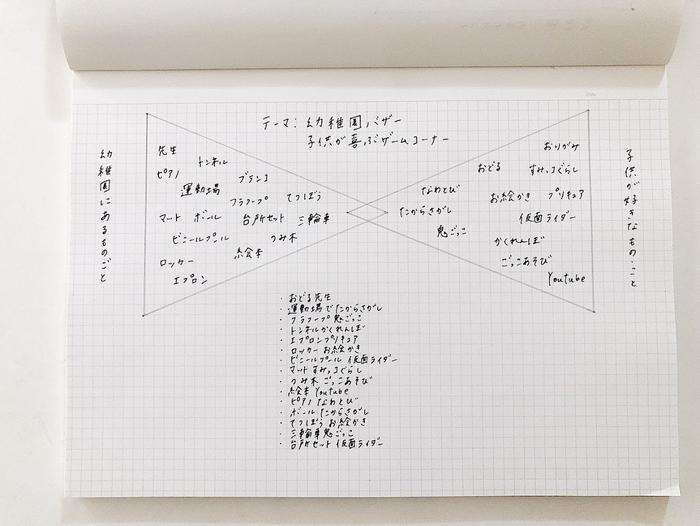 テーマ：幼稚園バザー
子供が喜ぶゲームコーナー
幼稚園にあるものごと
先生
トンネル
ピアノ
ブランコ
運動場
フラフープ
てつぼう
マート ボール 台所セット 三輪車
ビニールプール つみ木
ロッカー
絵本
エプロン
おりがみ
おどる
すみっコぐらし
なわとび
お絵かき プリキュア
たからさがし
仮面ライダー
鬼ごっこ
かくれんぼ
ごっこあそび
Youtube
子供が好きなもの・こと
・おどる先生
・運動場でたからさがし
・フラフープ鬼ごっこ
・トンネルかくれんぼ
・エプロンプリキュア
・ロッカーお絵かき
・ビニールプール 仮面ライダー
・マットすみっコぐらし
・つみ木 ごっこあそび
・絵本 Youtube
・ピアノ なわとび
・ボールたからさがし
・てつぼうお絵かき
・三輪車鬼ごっこ
・台所セット 仮面ライダー